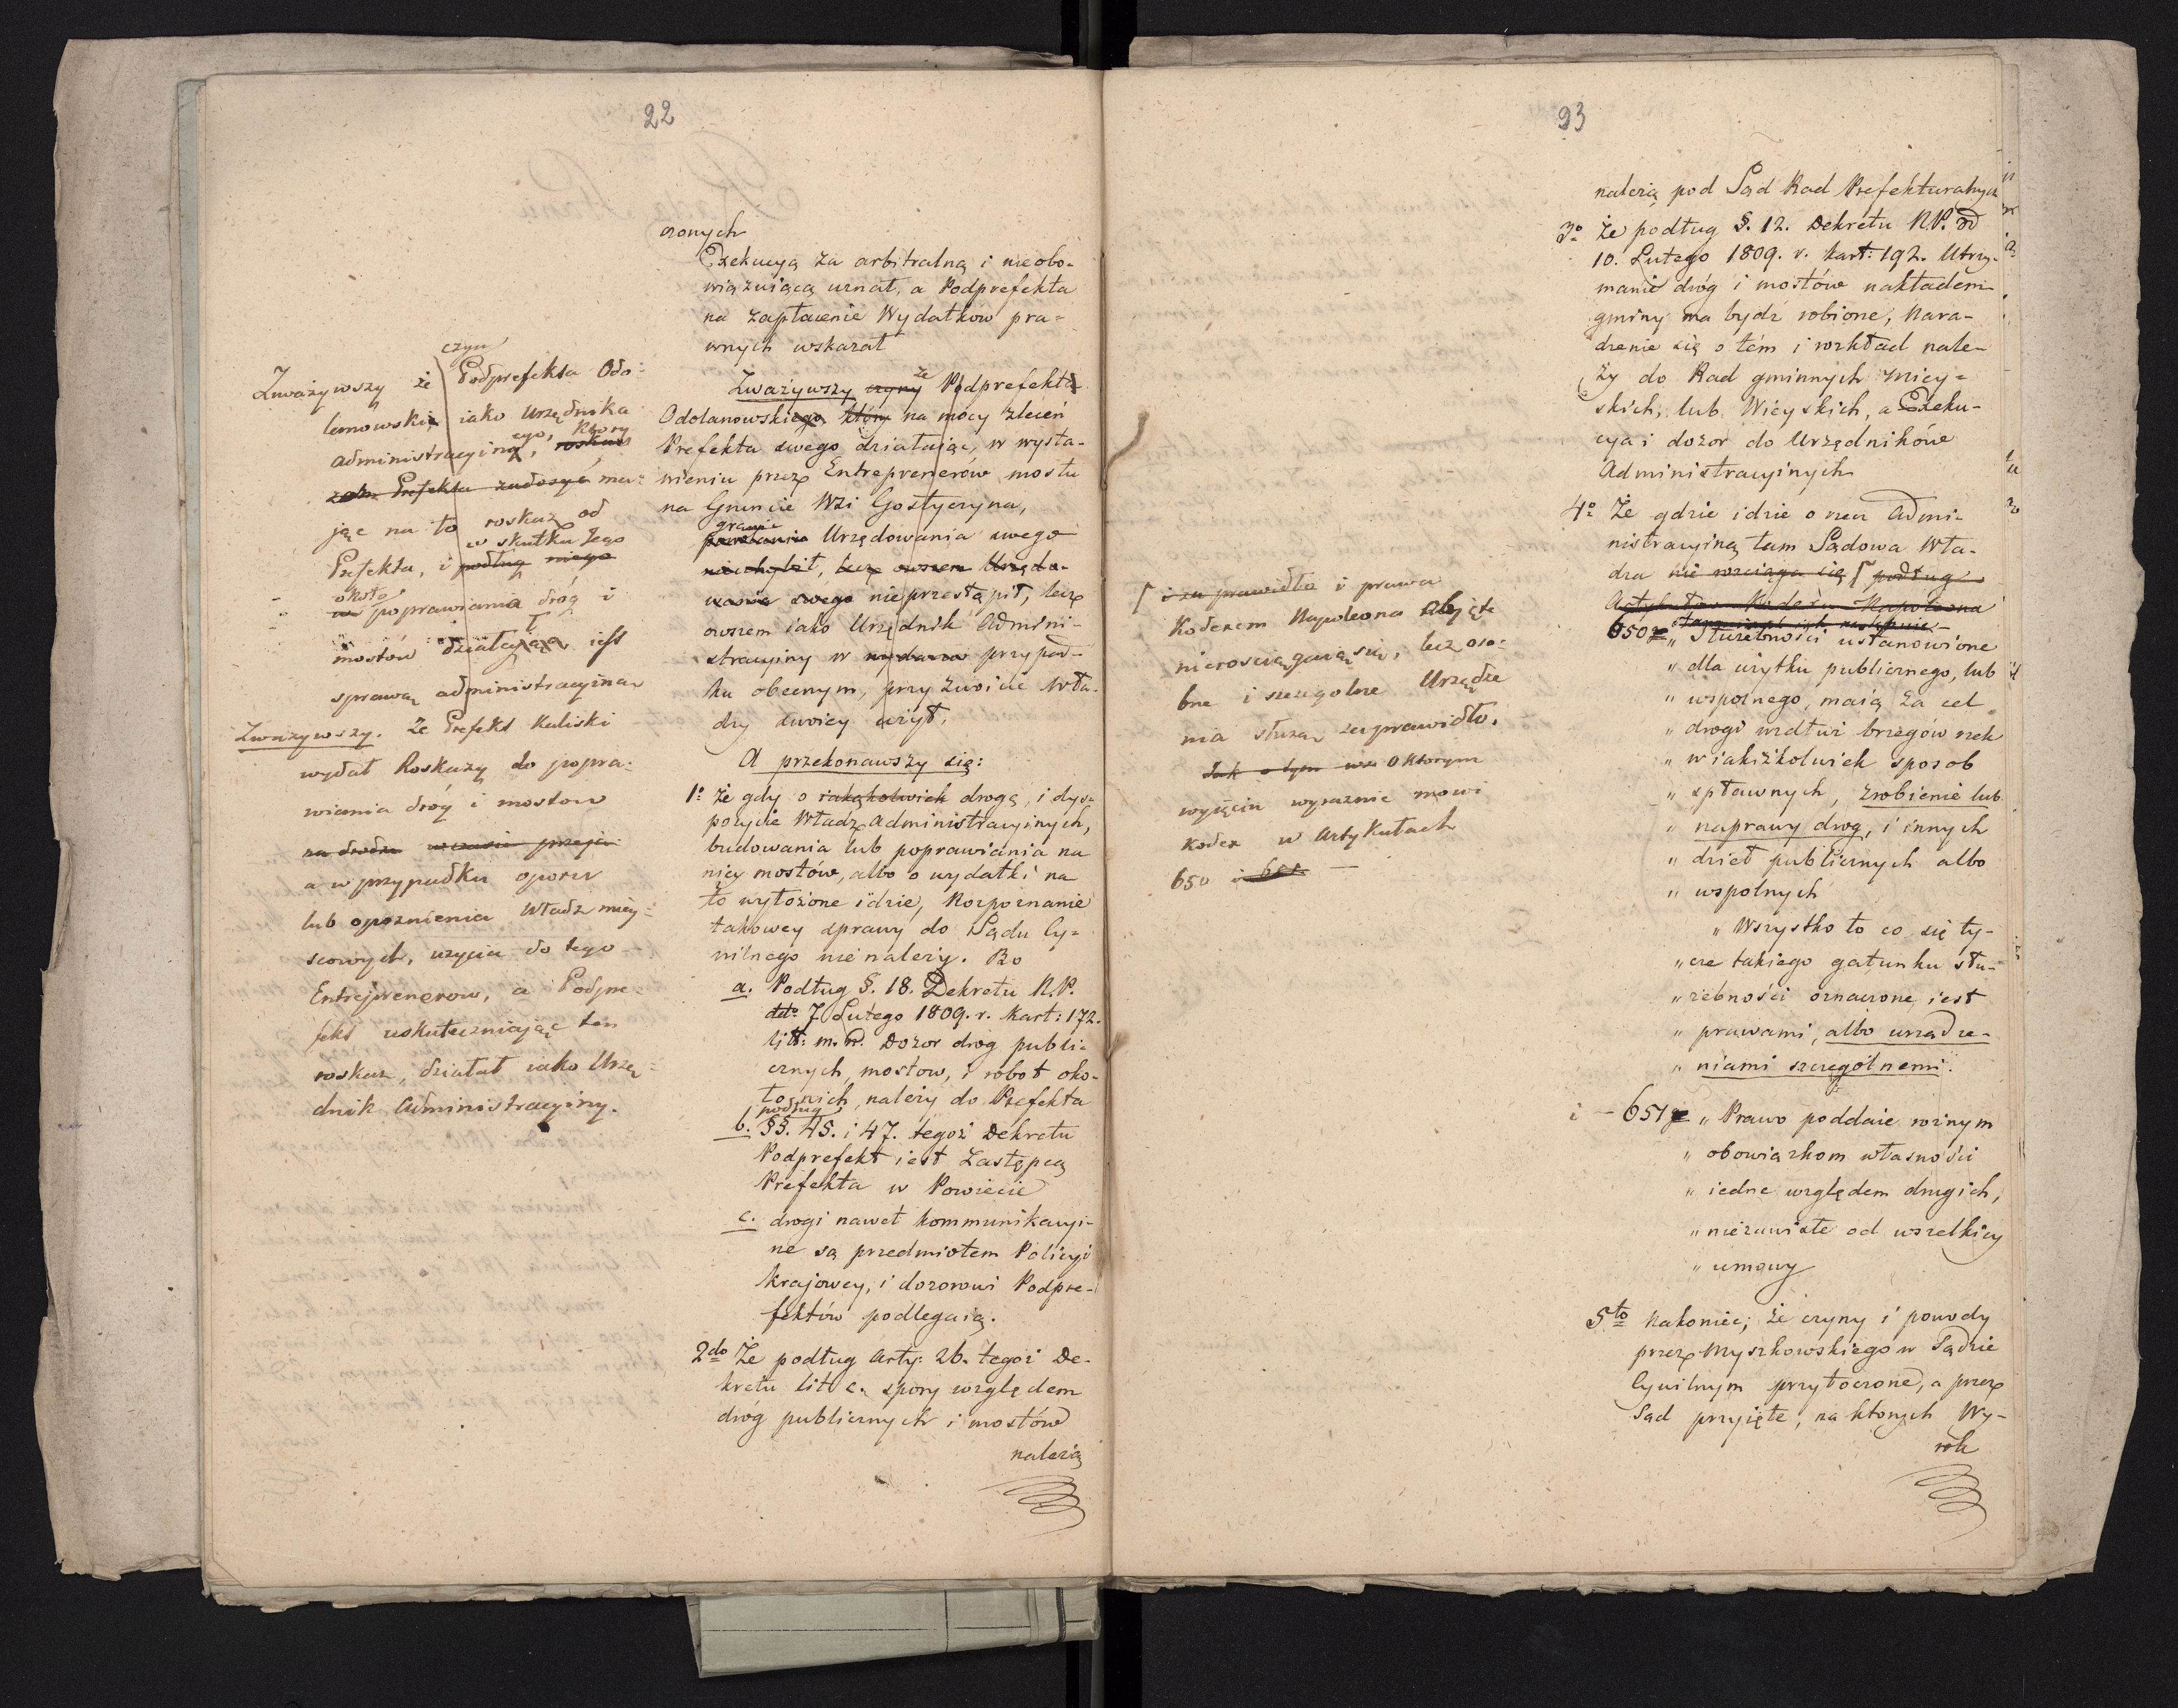 22
czonych
Exekucyą za arbitralną i nieobo-
wiązuiącą uznał, a Podprefekta
na zapłacenie Wydatków pra-
wnych wskazał
Zważywszy czyny że Podprefekta
Odolanowskiego który na mocy zleceń
Prefekta swego działaiąc, w wysta-
wieniu przez Entreprenerów mostu
na Gruncie Wsi Gostyczyna,
granic
Urzędowania swego
nieuchybił, lecz owszem Urzędo-
wania swego nieprzestąpił, lecz
owszem iako Urzędnik Admini-
stracyiny w przypad-
ku obecnym, przyzwoicie wła-
dzy swoiey użył.
A przekonawszy się:
1o że gdy o iakąkolwiek drogę, i dys-
pozycie Władz Administracyinych,
budowania lub poprawiania na
niey mostów, albo o wydatki na
to wyłożone idzie, Rozpoznanie
takowey sprawy do Sądu Cy-
wilnego nie należy. Bo
a. Podług §. 18. Dekretu N.P.
dto 7 Lutego 1809. r. Kart: 172.
lit: m. n. Dozor dróg publi-
cznych, mostow, i robot oko-
ło nich, należy do Prefekta
podług
b. §§. 45. i 47. tegoż Dekretu
Podprefekt iest Zastępcą
Prefekta w Powiecie
c. drogi nawet kommunikacyi-
ne są przedmiotem Policyi
krajowey, i dozorowi Podpre-
fektów podlegaią.
2do Że podług Arty: 26. tegoż De-
kretu lit c. spory względem
dróg publicznych i mostów
należą
czyn
Zważywszy że Podprefekta Odo-
lanowski, iako Urzędnika
ego, który
administracyjną, roskaz
Prefekta zadosyć ma-
jąc na to roskaz od
w skutku tego
Prefekta, i podług niego
około
w poprawiania dróg i
mostów działającą iest
sprawą administracyiną
Zważywszy. Że Prefekt Kaliski
wydał Roskazy do popra-
wiania dróg i mostow
na drodze w czasie przeja
a w przypadku oporu
lub opoznienia Władz miey-
scowych, użycia do tego
Entreprenerow, a Podpre-
fekt uskuteczniając ten
roskaz, działał iako Urzę-
dnik Administracyiny.
23
należą pod Sąd Rad Prefekturalnych
3o Że podług §. 12. Dekretu N.P. od
10. Lutego 1809. r. Kart: 192. Utrzy-
manie dróg i mostów nakładem
gminy ma bydź robione, Nara-
dzenie się o tém i rozkład nale-
ży do Rad gminnych Miey-
skich, lub Wieyskich, a Exeku-
cya i dozor do Urzędników
Administracyinych
4o Że gdzie idzie o rzecz Admi-
nistracyiną tam Sądowa Wła-
dza nie rozciąga się ⌈ podług
Artykułow Kodexu Napoleona
650 „ Służebności ustanowione
„ dla użytku publicznego, lub
„ wspolnego, maią za cel
„ drogi wzdłuż brzegów rzek
„ w iakiżkolwiek sposob
„ spławnych, zrobienie lub
„ naprawy drog, i innych
„ dzieł publicznych albo
„ wspolnych
„ Wszystko to co się ty-
„ cze takiego gatunku słu-
„ żebności oznaczone iest
„ prawami, albo urządze-
„ niami szczególnemi.
i – 651 „ Prawo poddaie roznym
„ obowiązkom własności
„ iedne względem drugich,
„ niezawisłe od wszelkiey
„ umowy
5to Nakoniec; że czyny i powody
przez Myszkowskiego w Sądzie
Cywilnym przytoczone, a przez
Sąd przyięte, na ktorych Wy-
rok
⌈ i za prawidła i prawa
Kodexem Napoleona objęte
nierosciągaią się, lecz oso-
bne i szczegolne Urządze
nia służą za prawidło.
Jak o tym o ktorym
wyjęciu wyraznie mowi
Kodex w Artykułach
650 i 651 —